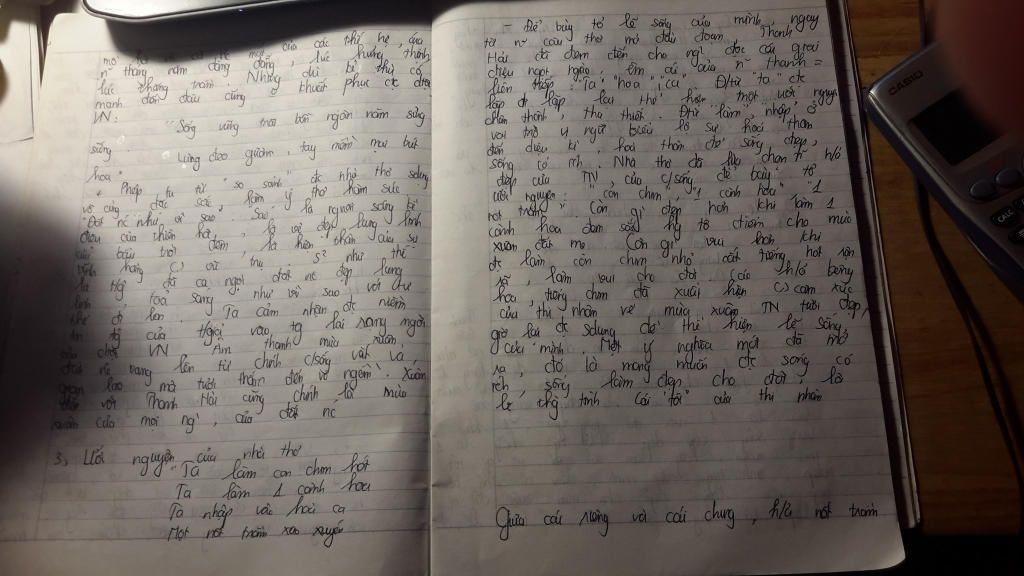 của các thế hệ, của
n tháng năm đằng đẵng, lúc hưng thịnh
lúc thăng trầm. Nhưng dù bé thù có
mạnh đến đâu cũng khuất phục đc
VN:
"Sống vững trãi bốn ngàn năm sừng
sững
Lưng đeo gươm, tay mềm mại bút
hoa"
+ Phép tu từ "so sánh" đc nhà thơ sdụng
vô cùng đặc sắc, làm ý thơ hàm súc
"Đất nc như vì sao". Sao là nguồn sáng kì
diệu của thiên hà, là vẻ đẹp lung linh
bầu trời đêm, là hiện thân của sự
vĩnh hằng vũ trụ. s² như thế
là t/giả đã ca ngợi đất nc đẹp lung
linh, toả sáng như vì sao với tư
thế đi lên. Ta cảm nhận đc niềm
tin của t/giả vào tg lai rạng ngời
của đất nc VN. Âm thanh mùa xuân
đất nc vang lên từ chính c/sống vất vả,
gian lao mà tươi thắm đến vô ngần. Xuân
đến với Thanh Hải cũng chính là mùa
xuân của mọi ng', của đất nc
3, Ước nguyện của nhà thơ
"Ta làm con chim hót
Ta làm 1 cành hoa
Ta nhập vào hoà ca
Một nốt trầm xao xuyến
- Để bày tỏ lẽ sống của mình, ngay
từ n~ câu thơ mở đầu đoạn, Thanh
Hải đã đem đến cho ng' đọc cái giai
điệu ngọt ngào, êm ái của n~ thanh =
liên tiếp "Ta" "hoa" "ca". Đtừ "ta" đc
lặp đi lặp lại thể hiện một ước nguyện
chân thành, tha thiết. Đtừ làm, nhập, ở
vai trò vị ngữ biểu lộ sự hoá thân
đến diệu kì - hoá thân để sống đẹp,
sống có ích. Nhà thơ đã lựa chọn n~ h/ả
đẹp của TN, của c/sống để bày tỏ
ước nguyện: "con chim", "1 cành hoa", "1
nốt trầm". Còn gì đẹp hơn khi làm 1
cành hoa đem sắc hg tô điểm cho mùa
xuân đất mẹ. Còn gì vui hơn khi
đc làm con chim nhỏ cất tiếng hót rộn
rã, làm vui cho đời. Các h/ả bông
hoa, tiếng chim đã xuất hiện cảm xúc
của thi nhân về mùa xuân TN tươi đẹp,
giờ lại đc sdụng để thể hiện lẽ sống
của mình. Một ý nghĩa mới đã mở
ra, đó là mong muốn đc sống có
ích, sống làm đẹp cho đời, là
cái "tôi" của thi nhân
Giữa cái riêng và cái chung, h/ả nốt trầm
CASIO
CALC